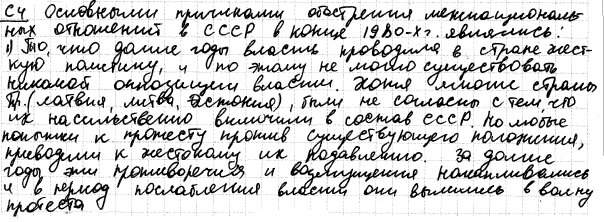 С4 Основными причинами обострения межнациональ-
ных отношений в СССР в конце 1980-х г. являлись:
1) То, что долгие годы власть проводила в стране жест-
кую политику, и по этому не могло существовать
никакой оппозиции власти. Хотя многие страны
(Латвия, Литва, Эстония), были не согласны с тем, что
их насильственно включили в состав СССР. Но любые
попытки к протесту против существующего положения,
приводили к жестокому их подавлению. За долгие
годы эти противоречия и возмущения накапливались
и в период послабления власти они вылились в волну
протеста